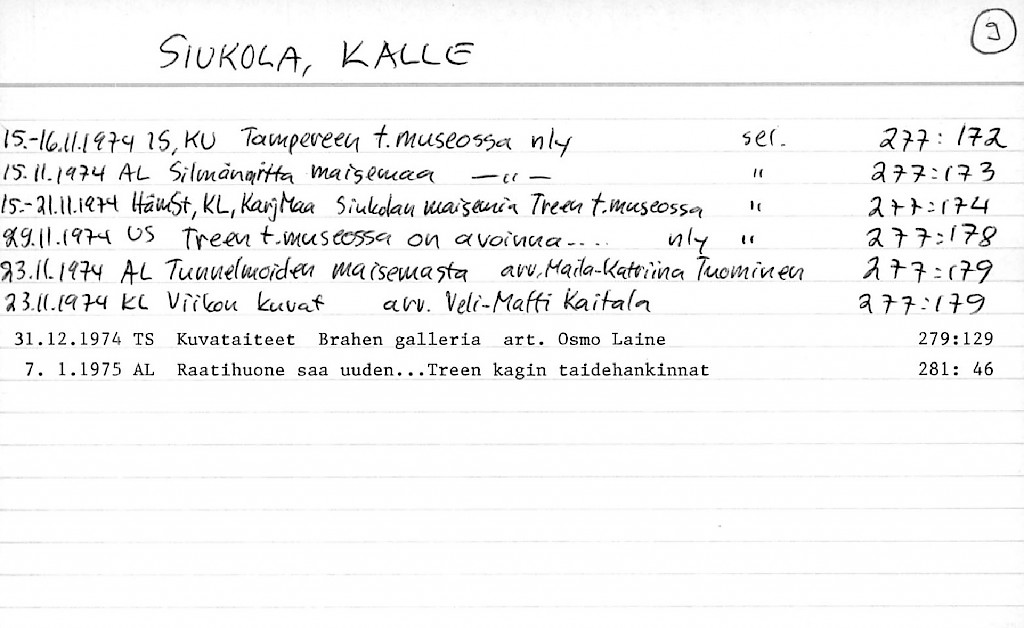 9
SIUKOLA, KALLE
15.-16.11.1974 IS, KU Tampereen t.museossa nly sel. 277:172
15.11.1974 AL Silmänsiitta maisemaa —"— " 277:173
15.-21.11.1974 HämSt, KL, KarjMaa Siukolan maisemia Treen t.museossa " 277:174
29.11.1974 US Treen t.museossa on avoinna.... nly " 277:178
23.11.1974 AL Tunnelmoiden maisemasta arv. Maila-Katriina Tuominen 277:179
23.11.1974 KL Viikon kuvat arv. Veli-Matti Kaitala 277:179
31.12.1974 TS Kuvataiteet Brahen galleria art. Osmo Laine 279:129
7. 1.1975 AL Raatihuone saa uuden...Treen kagin taidehankinnat 281: 46